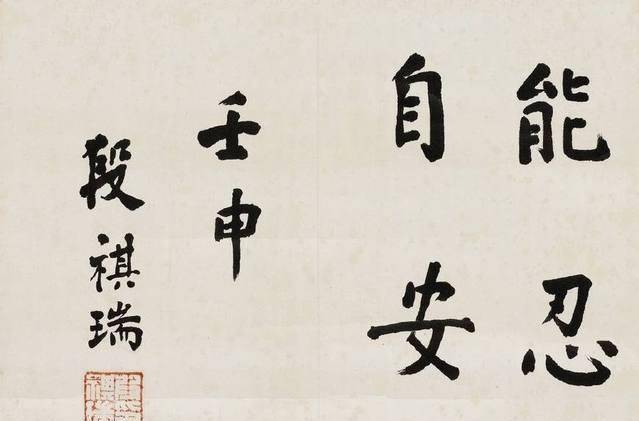 能忍
自安
壬申
段祺瑞